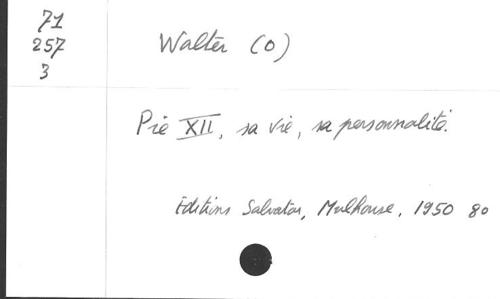 71
257
3
Walter (O)
Pie XII, sa vie, sa personnalité.
Editions Salvator, Mulhouse, 1950 80